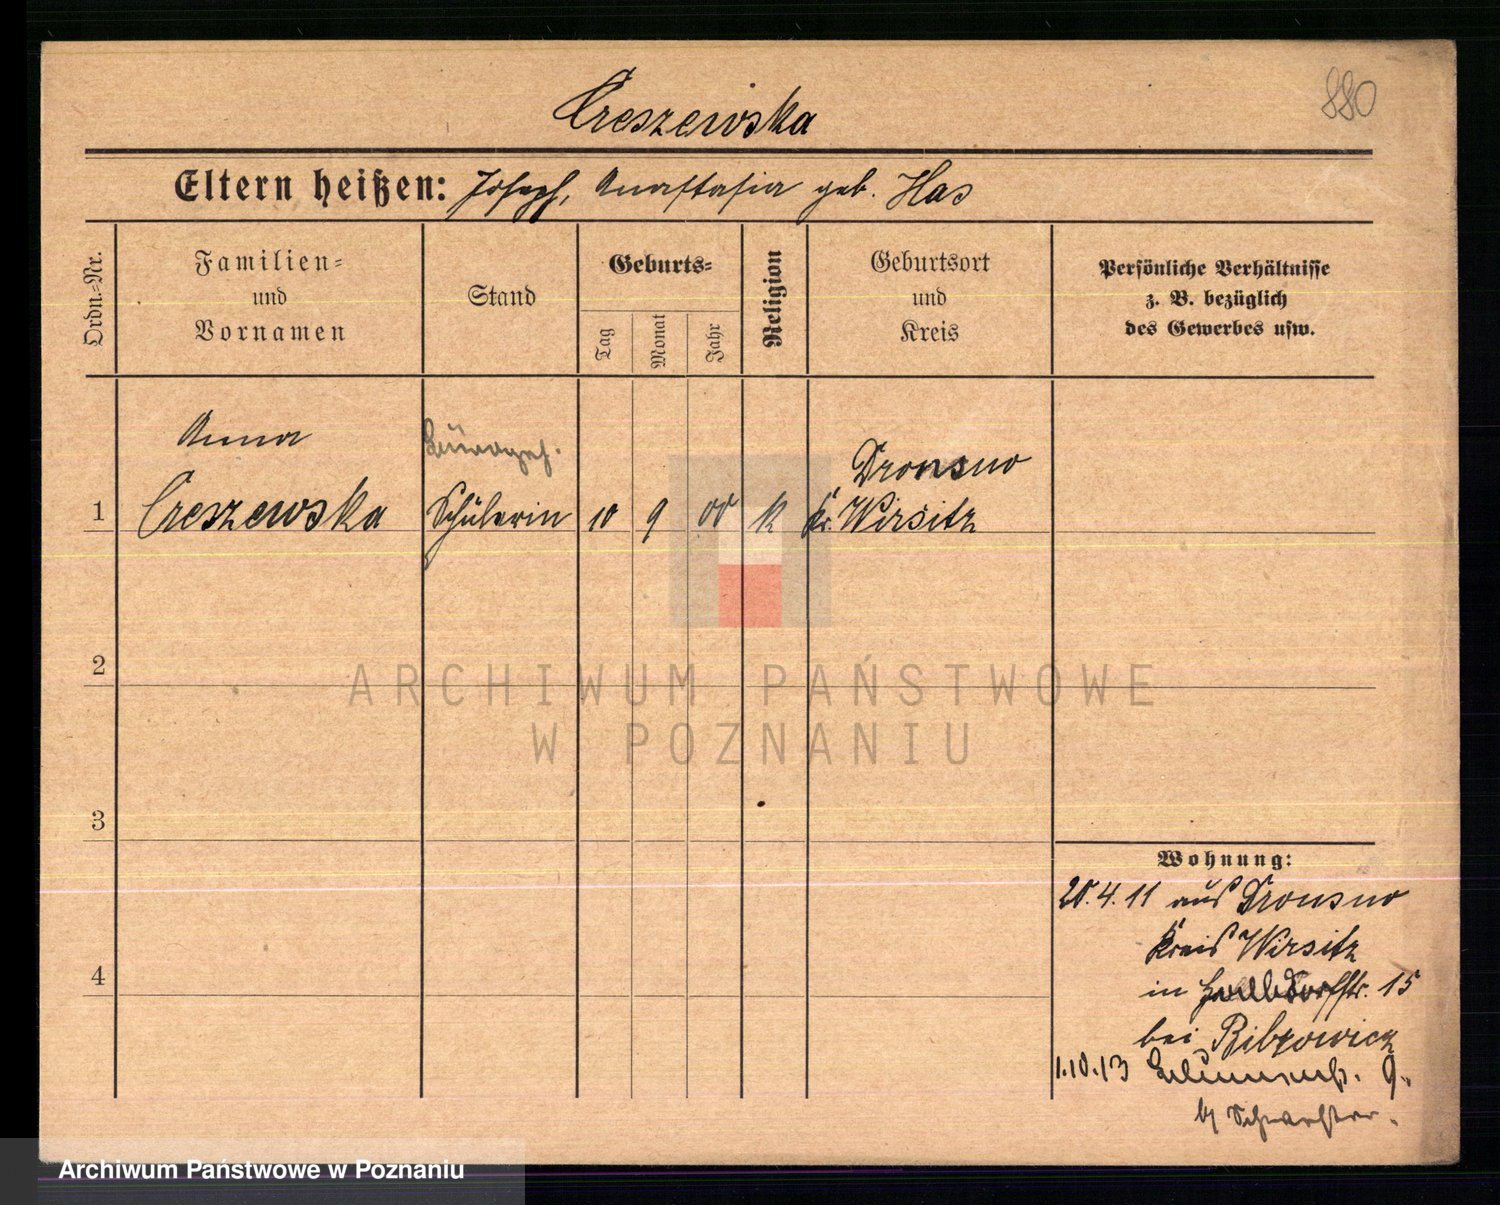 880
Creszewska
Eltern heißen: Joseph, Anastasia geb. Has
Ordn.=Nr.
Familien=
und
Vornamen
Stand
Geburts=
Tag
Monat
Jahr
Religion
Geburtsort
und
Kreis
Persönliche Verhältnisse
z. B. bezüglich
des Gewerbes usw.
Anna
Bürogeh.
Dronsno
1 Creszewska Schülerin 10 9 00 k Kr. Wirsitz
2
ARCHIWUM PAŃSTWOWE
W POZNANIU
3
4
Wohnung:
20.4.11 aus Dronsno
Kreis Wirsitz
in 15
bei Bibrowicz
1.10.13 Blumenstr. 9.
b/ Schwester.
Archiwum Państwowe w Poznaniu